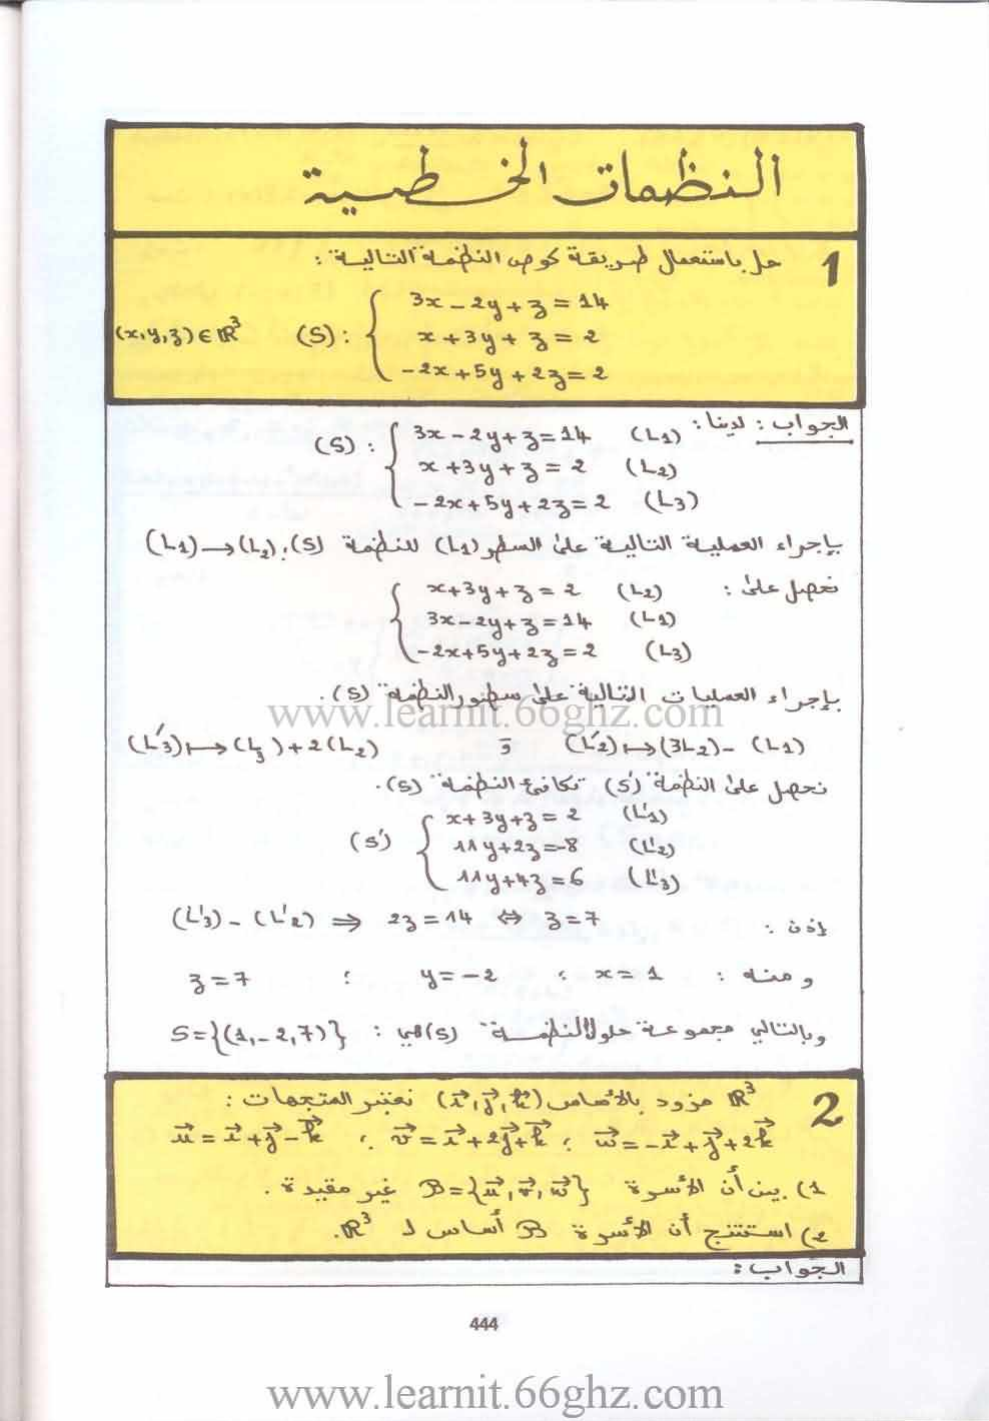 النظمات الخطية
1 حل باستعمال طريقة كوص النظمة التالية :
3x - 2y + z = 14
(x,y,z) ∈ ℝ³ (S) : { x + 3y + z = 2
-2x + 5y + 2z = 2
الجواب : لدينا : (S) : { 3x - 2y + z = 14 (L1)
x + 3y + z = 2 (L2)
-2x + 5y + 2z = 2 (L3)
بإجراء العملية التالية على السطر (L1) للنظمة (S) : (L1) → (L2)
نحصل على : { x + 3y + z = 2 (L2)
3x - 2y + z = 14 (L1)
-2x + 5y + 2z = 2 (L3)
بإجراء العمليات التالية على سطور النظمة (S).
www.learnit.66ghz.com
(L'2) ↦ (3L2) - (L1) و (L'3) ↦ (L3) + 2(L2)
نحصل على النظمة (S') تكافئ النظمة (S).
x + 3y + z = 2 (L'1)
(S') { 11y + 2z = -8 (L'2)
11y + 4z = 6 (L'3)
إذن : (L'3) - (L'2) ⇒ 2z = 14 ⇔ z = 7
ومنه : x = 1 ; y = -2 ; z = 7
وبالتالي مجموعة حلول النظمة (S) هي : S = {(1, -2, 7)}
2 ℝ³ مزود بالأساس (i⃗, j⃗, k⃗) نعتبر المتجهات :
u⃗ = i⃗ + j⃗ - k⃗ ; v⃗ = i⃗ + 2j⃗ + k⃗ ; w⃗ = -i⃗ + j⃗ + 2k⃗
1) بين أن الأسرة B = {u⃗, v⃗, w⃗} غير مقيدة .
2) استنتج أن الأسرة B أساس لـ ℝ³.
الجواب :
444
www.learnit.66ghz.com